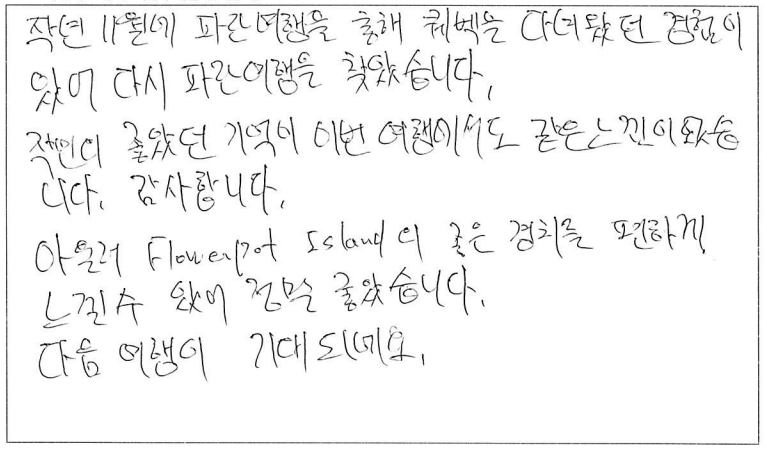 작년 11월에 파란여행을 통해 퀘벡을 다녀왔던 경험이
있어 다시 파란여행을 찾았습니다.
적인의 좋았던 기억이 이번 여행에서도 같은 느낀이 됐습
니다. 감사합니다.
아울러 Flowerpot Island의 좋은 경치를 편하게
느낄수 있어 정말 좋았습니다.
다음 여행이 기대되네요.